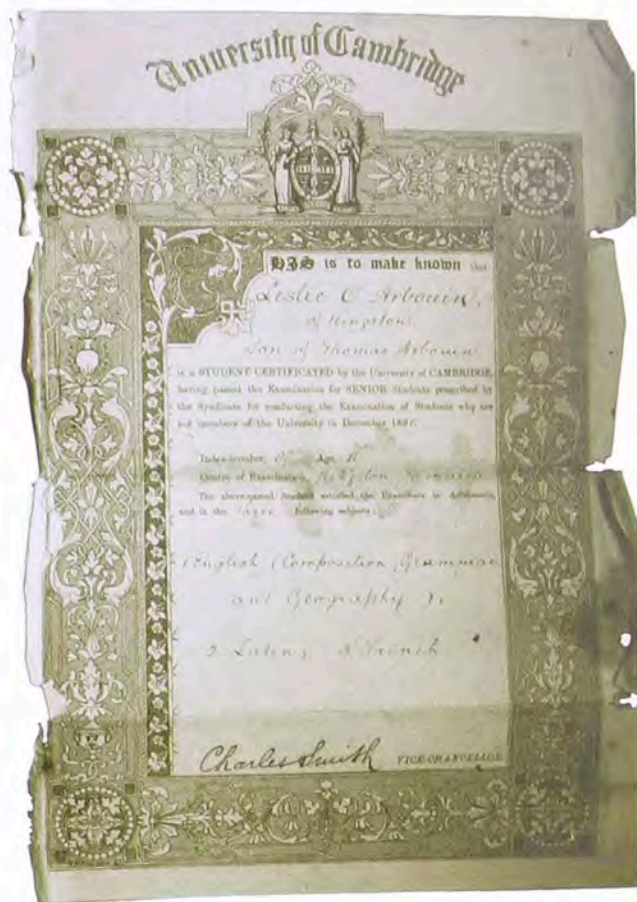 University of Cambridge
THIS is to make known that
Leslie C Arbouin,
of Kingston
Son of Thomas Arbouin
is a STUDENT CERTIFICATED by the University of CAMBRIDGE,
having passed the Examination for SENIOR Students prescribed by
the Syndicate for conducting the Examination of Students who are
not members of the University in December
Index-number, Age,
Centre of Examination, Kingston
The above-named Student satisfied the Examiners in Arithmetic,
and in the three following subjects:
1 English (Composition, Grammar
and Geography),
2 Latin, 3 French
Charles Smith VICE-CHANCELLOR